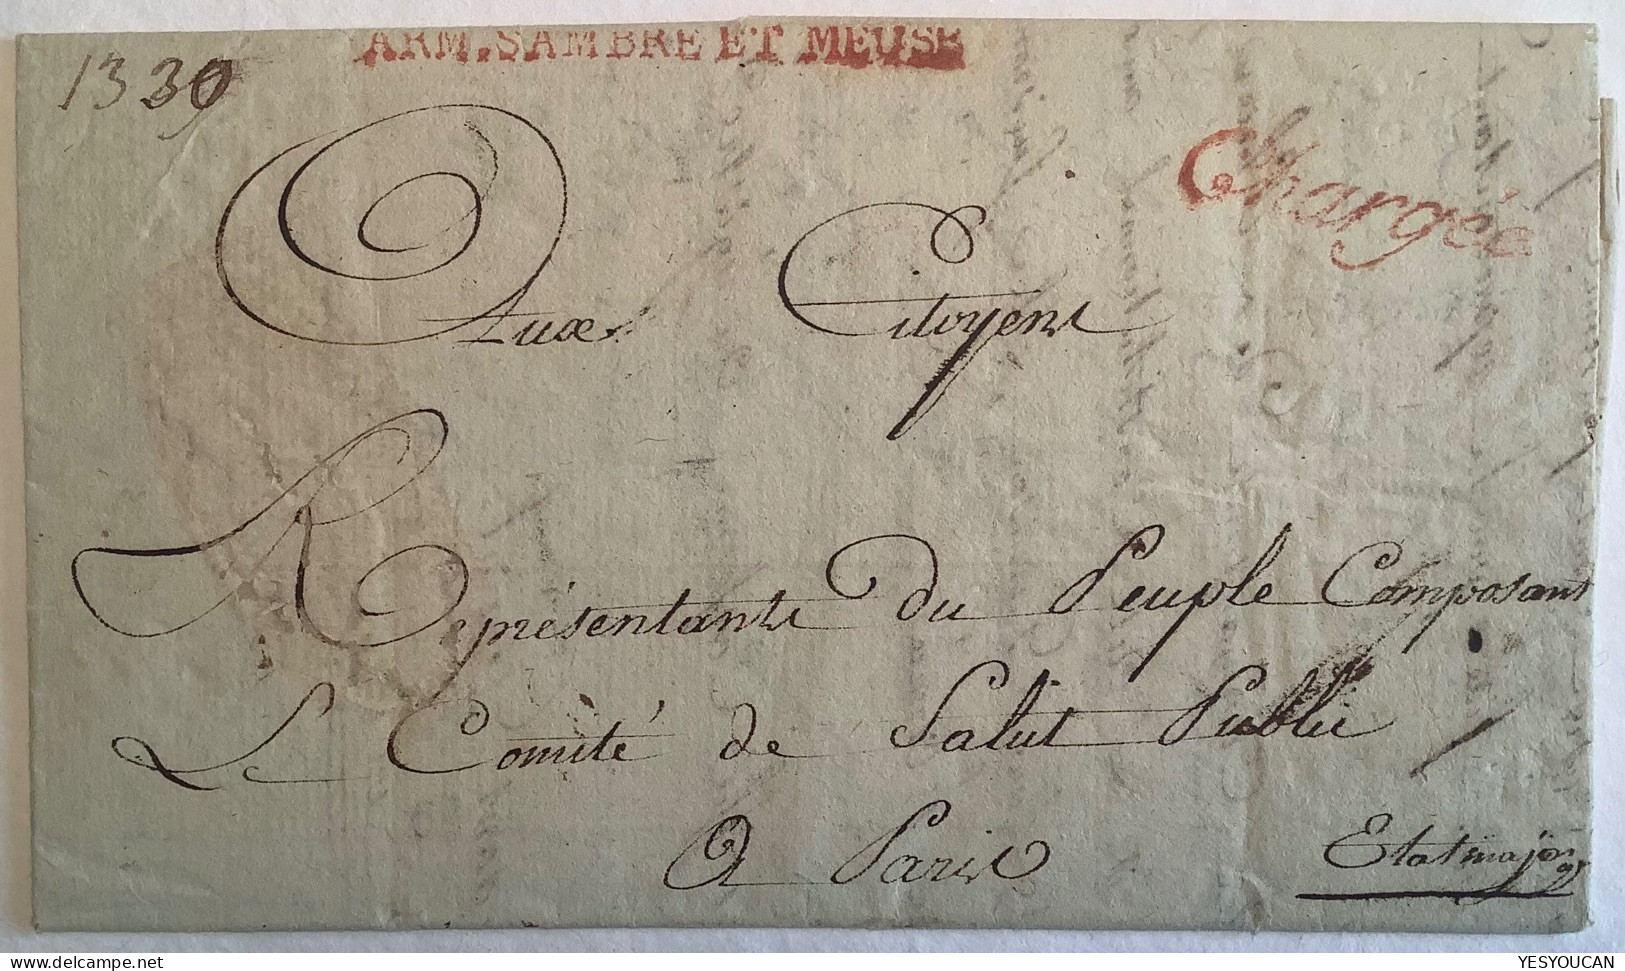 ARM. SAMBRE ET MEUSE
1330
Chargée
Aux Citoyens
Représentants Du Peuple Composant
Le Comité de Salut Public
A Paris
Etatmajor
YESYOUCAN